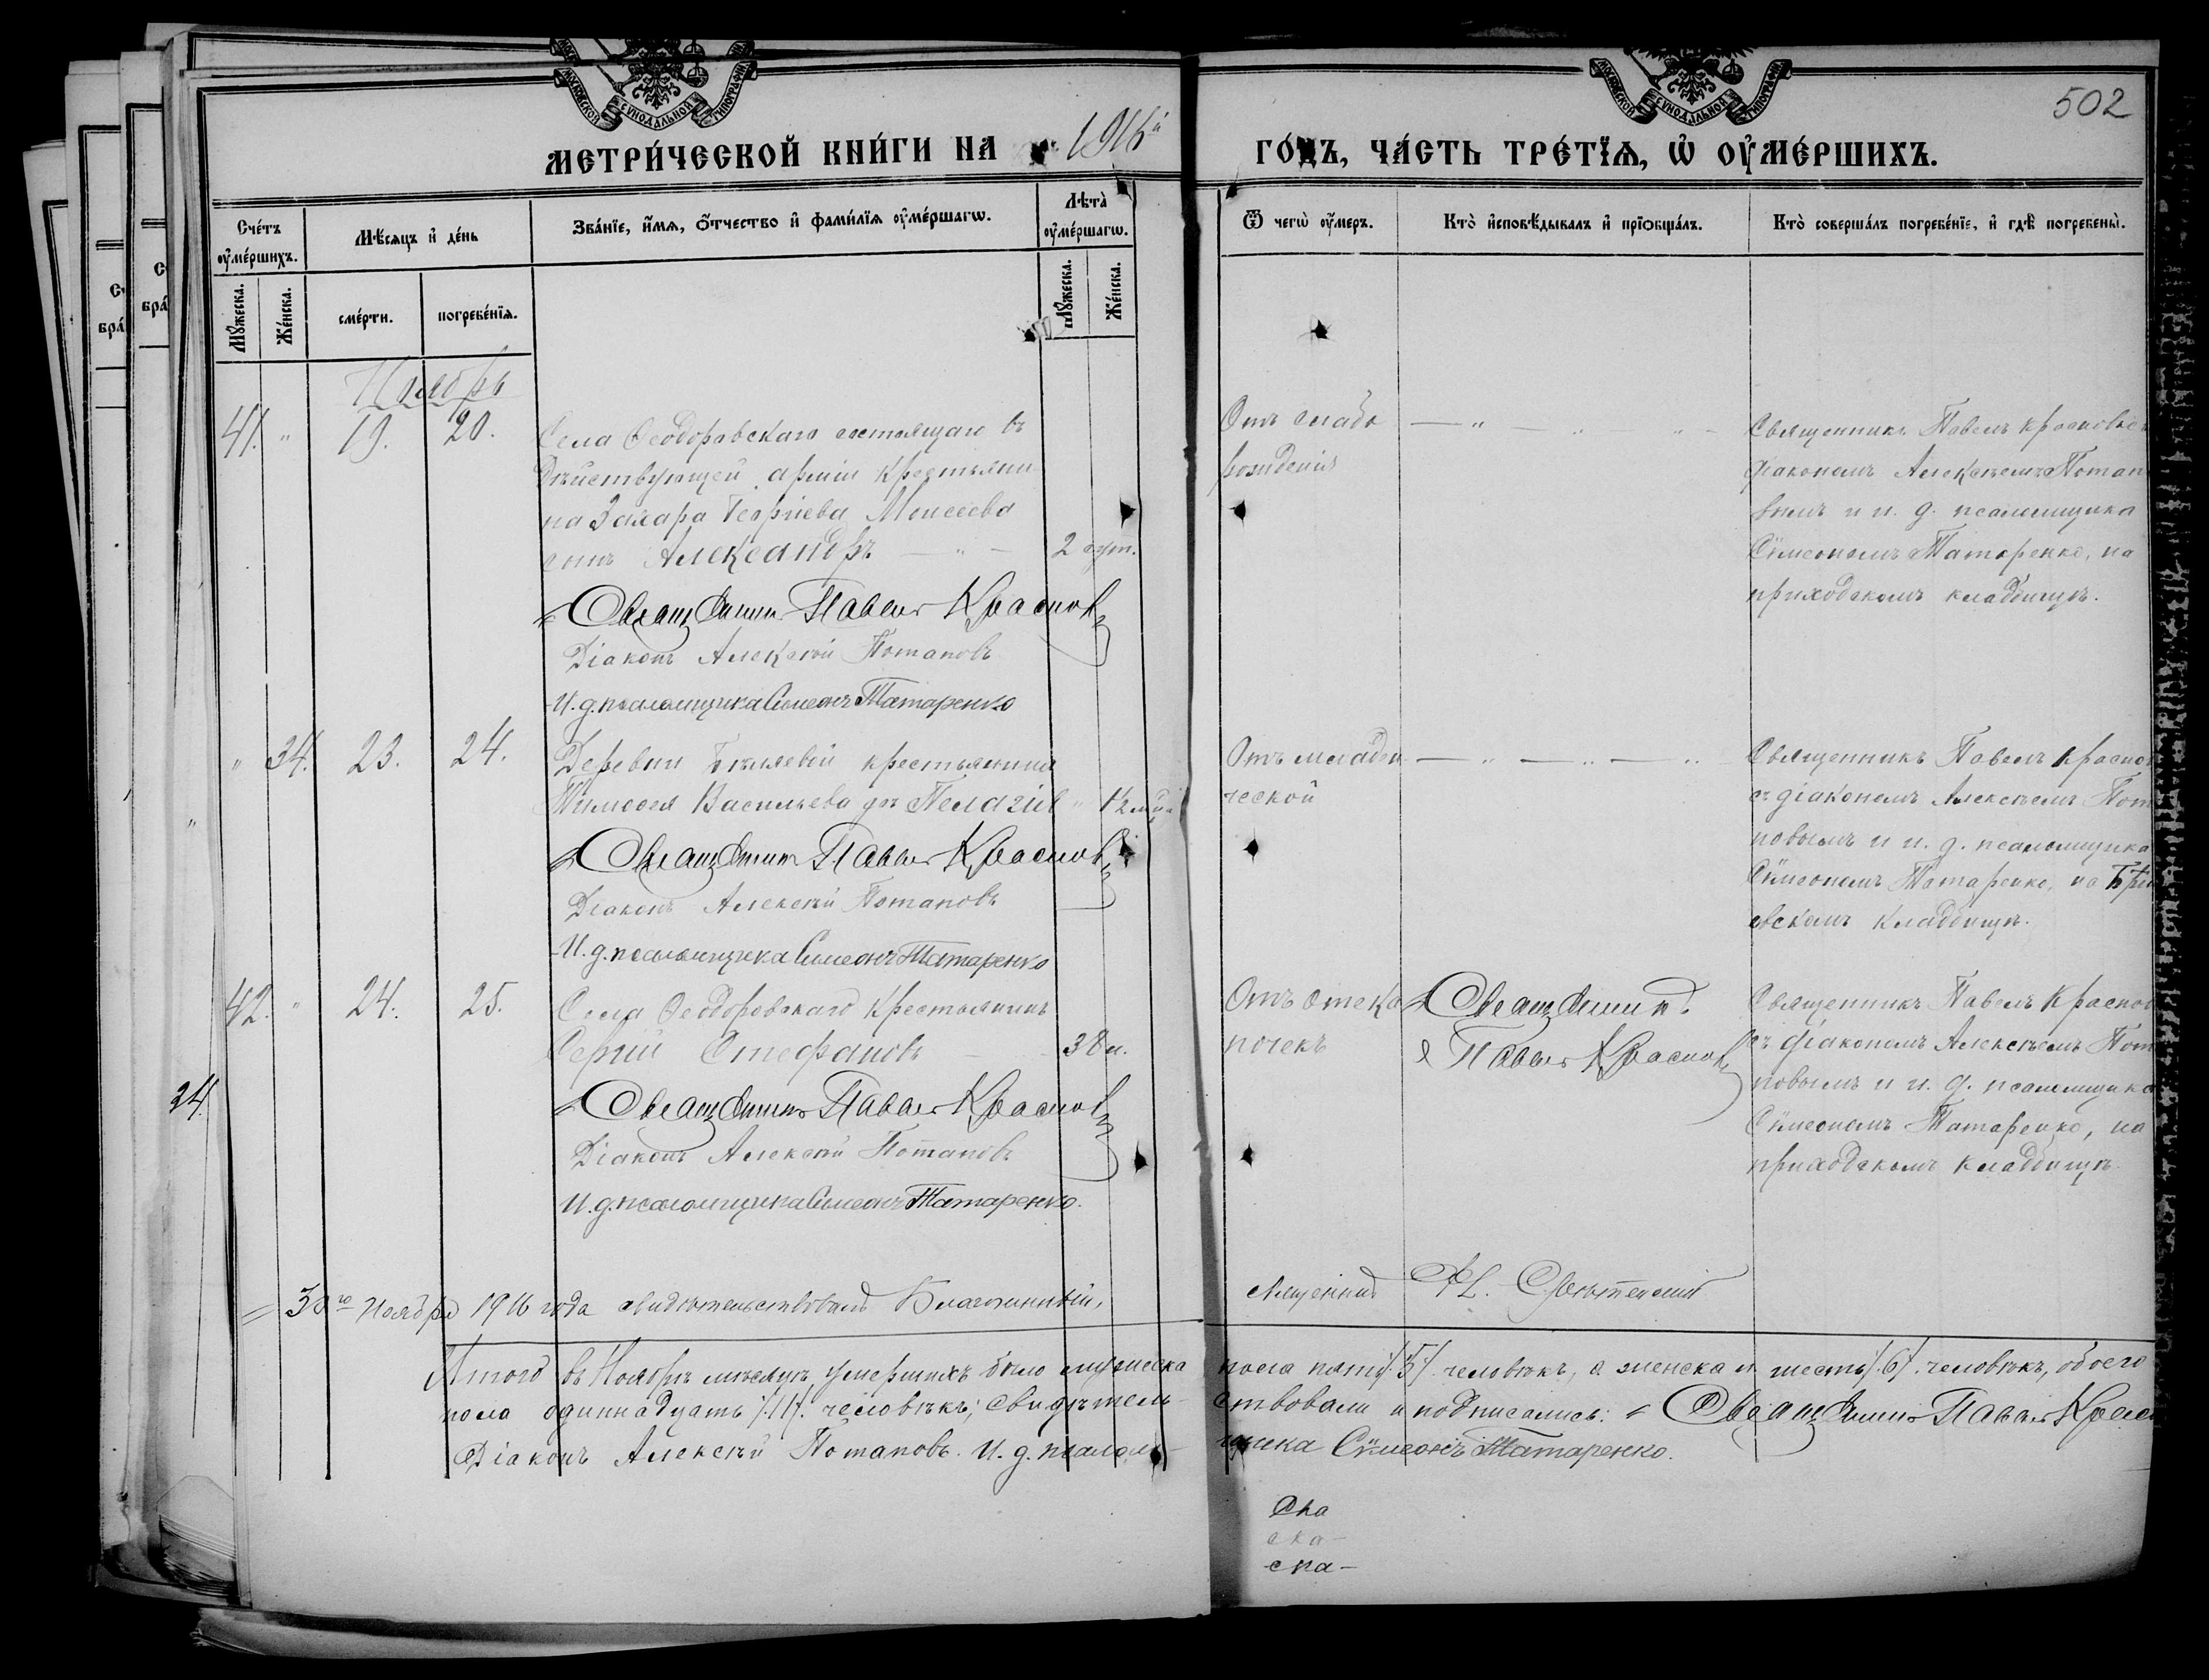 МОСКОВСКОЙ СѴНОДАЛЬНОЙ ТИПОГРАФИИ
МОСКОВСКОЙ СѴНОДАЛЬНОЙ ТИПОГРАФИИ
502
МЕТРИ́ЧЕСКОЙ КНИ́ГИ НА 1916й
ГО́ДЪ, ЧА́СТЬ ТРЕ́ТЇѦ, Ѡ҆ ОУ҆МЕ́РШИХЪ.
Сче́тъ оу҆ме́ршихъ.
Мѣ́сяцъ и҆ де́нь
Зва́нїе, и҆́мѧ, ѻ҆́тчество и҆ фами́лїѧ оу҆ме́ршагѡ.
Лѣта̀ оу҆ме́ршагѡ.
Ѿ чегѡ̀ оу҆́меръ.
Кто̀ и҆сповѣ́дывалъ и҆ прїѡбща́лъ.
Кто̀ соверша́лъ погребе́нїе, и҆ гдѣ̀ погребены̀.
Мꙋ́жеска.
Же́нска.
сме́рти.
погребе́нїѧ.
Мꙋ́жеска.
Же́нска.
Ноябрь
41. " 19. 20.
Села Ѳеодоровскаго состоящаго въ
Дѣйствующей арміи крестьяни
на Захара Георгіева Моисеева
сынъ Александръ — " — 2 
Священникъ Павелъ Красновъ
Діаконъ Алексѣй Потаповъ
И. д. псаломщика Симеонъ Татаренко
Отъ слабо
рожденія
— " — " " —
Священникъ Павелъ Красновъ с
діакономъ Алексѣемъ Потап
вымъ и и. д. псаломщика
Сѵмеономъ Татаренко, на
приходскомъ кладбищѣ.
" 34. 23. 24.
Деревни крестьянина
Тимоѳея Васильева дч Пелагія " 1½
Священникъ Павелъ Красновъ
Діаконъ Алексѣй Потаповъ
И. д. псаломщика Симеонъ Татаренко
Отъ младен
ческой
— " — " — "
Священникъ Павелъ Краснов
съ діакономъ Алексѣемъ Пот
повымъ и и. д. псаломщика
Сѵмеономъ Татаренко, на
евскомъ кладбищѣ.
42. " 24. 25.
Села Ѳеодоровскаго крестьянинъ
Сергій Стефановъ — 38 л.
Священникъ Павелъ Красновъ
Діаконъ Алексѣй Потаповъ
И. д. псаломщика Симеонъ Татаренко.
Отъ отека
почекъ
Священникъ
Павелъ Красновъ
Священникъ Павелъ Краснов
съ діакономъ Алексѣемъ Пот
повымъ и и. д. псаломщика
Сѵмеономъ Татаренко, на
приходскомъ кладбищѣ.
34.
= 30го Ноября 1916 года свидѣтельствовалъ Благочинный, священникъ
Итого въ Ноябрѣ мѣсяцѣ умершихъ было мужеска пола пять /.5/. человѣкъ, а женска п. шесть /.6/. человѣкъ, обоего
пола одиннадцать /.11/. человѣкъ; свидѣтельствовали и подписались: Священникъ Павелъ Красн
Діаконъ Алексѣй Потаповъ. И. д. псаломщика Сѵмеонъ Татаренко.
ска
ска-
ска-